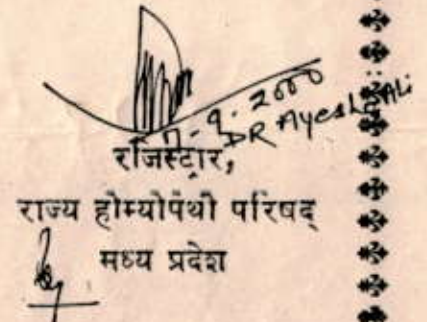 DR Ayesha Ali
रजिस्ट्रार,
राज्य होम्योपैथी परिषद्
मध्य प्रदेश